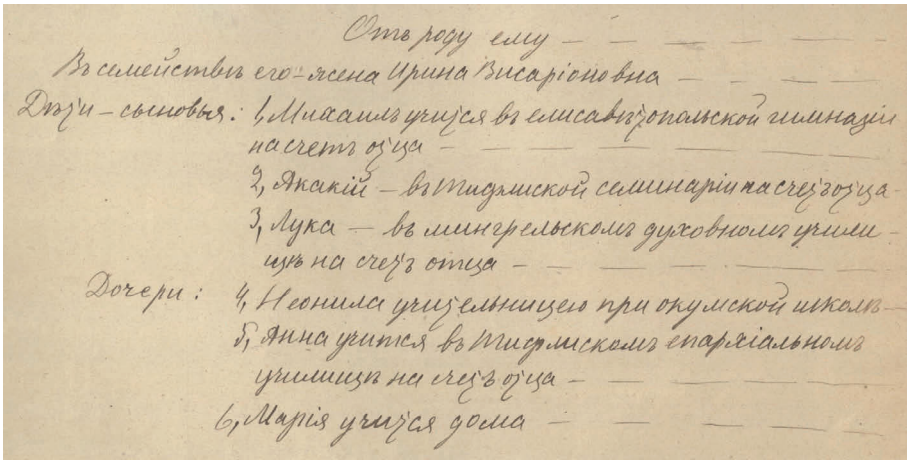 Отъ роду ему — — — — —
Въ семействѣ его – жена Ирина Висаріоновна — — —
Дѣти – сыновья: 1, Михаилъ учится въ елисаветопольской гимназіи
на счетъ отца — — — — — —
2, Акакій – въ тифлиской семинаріи на счетъ отца –
3, Лука – въ мингрельскомъ духовномъ учили-
щѣ на счетъ отца — — — — —
Дочери: 4, Неонила учительницею при окумской школѣ –
5, Анна учится въ тифлискомъ епархіальномъ
училищѣ на счетъ отца — — — —
6, Марія учится дома — — — —